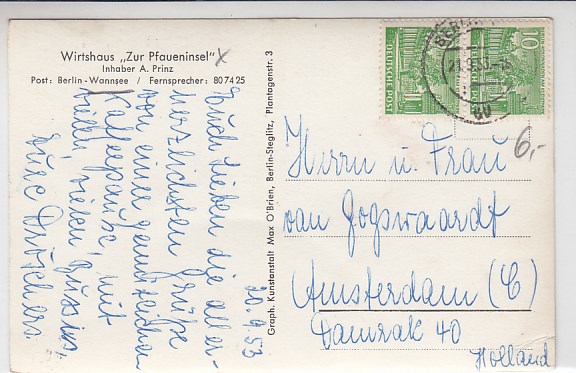 Wirtshaus „Zur Pfaueninsel"
Inhaber A. Prinz
Post: Berlin-Wannsee / Fernsprecher: 80 74 25
20.9.53
Euch Lieben die aller-
herzlichsten Grüße
von einer gemütlichen
Kaffeepause, mit
vielen, vielen Bussis,
Eure
Graph. Kunstanstalt Max O'Brien, Berlin-Steglitz, Plantagenstr. 3
DEUTSCHE POST
10
BERLIN
6,-
Herrn u. Frau
van Gogswaardt
Amsterdam (C)
Damrak 40
Holland